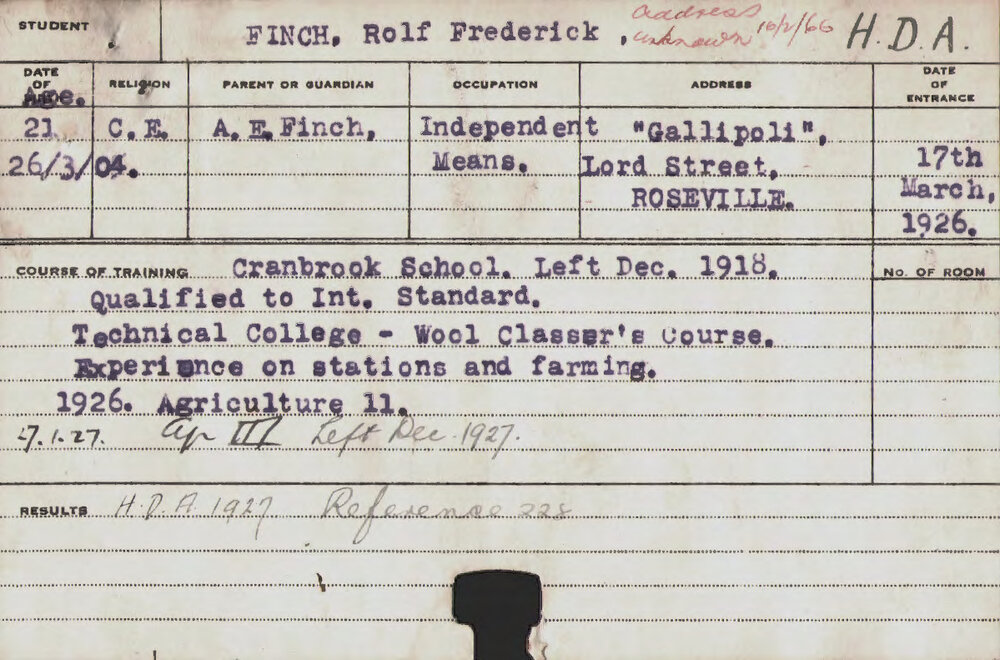 STUDENT FINCH, Rolf Frederick , address unknown 10/2/66 H.D.A.
DATE OF Age. RELIGION PARENT OR GUARDIAN OCCUPATION ADDRESS DATE OF ENTRANCE
21 C.E. A.E.Finch, Independent "Gallipoli",
26/3/04. Means. Lord Street, 17th
ROSEVILLE. March,
1926.
COURSE OF TRAINING Cranbrook School. Left Dec. 1918. No. OF ROOM
Qualified to Int. Standard.
Technical College - Wool Classer's Course.
Experience on stations and farming.
1926. Agriculture 11.
27.1.27. Ag III Left Dec. 1927.
RESULTS H.D.A. 1927 Reference 228